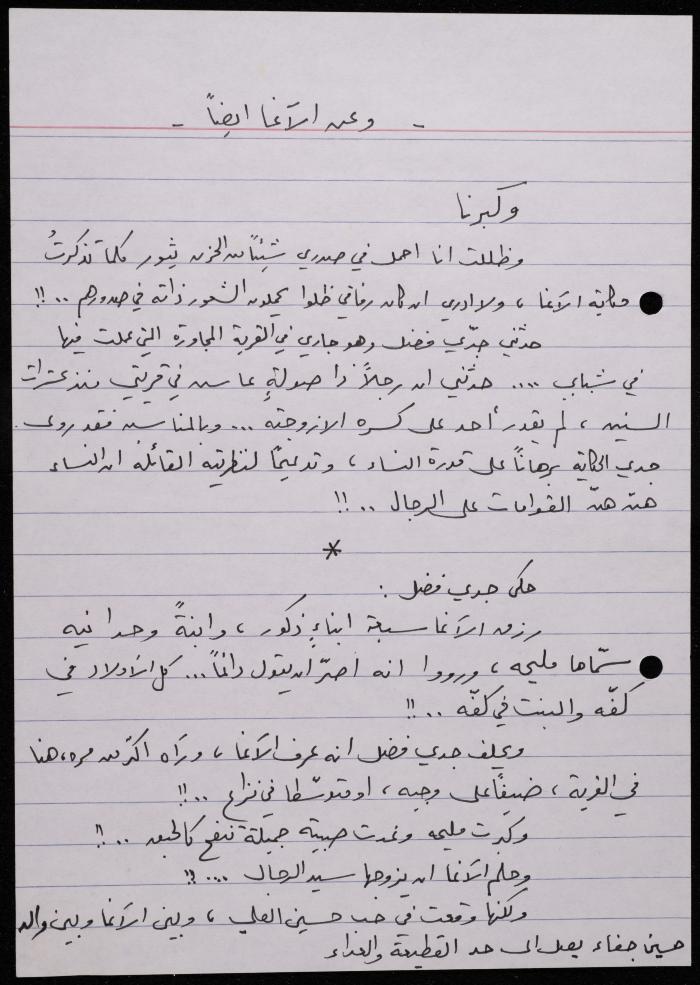 - وعن الآغا ايضاً -
وكبرنا
وظللت انا احمل في صدري شيئاً من الحزن يثور كلما تذكرتُ
حكاية الآغا ، ولا ادري ان كان رفاقي ظلوا يحملون الشعور ذاته في صدورهم .. !!
حدثني جدّي فضل وهو جاري في القرية المجاورة التي عملت فيها
في شبابي .... حدثني ان رجلاً ذا صولةٍ عاش في قريتي منذ عشرات
السنين ، لم يقدر أحد على كسره الا زوجته ... وبالمناسبة فقد روى
جدي الحكاية برهاناً على قدرة النساء ، وتدعيماً لنظريته القائلة ان النساء
هنّ هنّ القوامات على الرجال .. !!
*
حكى جدي فضل :
رزق الآغا سبعة ابناءٍ ذكور ، وابنةً وحدانيه
سمّاها مليحه ، ورووا انه اصرّ ان يقول دائماً ... كل الاولاد في
كفّه والبنت في كفّه .. !!
ويحلف جدي فضل انه عرف الآغا ، ورآه اكثر من مره ، هنا
في القرية ، ضيفاً على وجيه ، او متوسّطا في نزاع .. !!
وكبرت مليحه وغدت صبية جميلة تنفح كالحبق .. !!
وحلم الآغا ان يزوجها سيد الرجال .... !!
ولكنها وقعت في حب حسين العلي ، وبين الآغا وبين والد
حسين جفاء يصل الى حد القطيعة والعداء